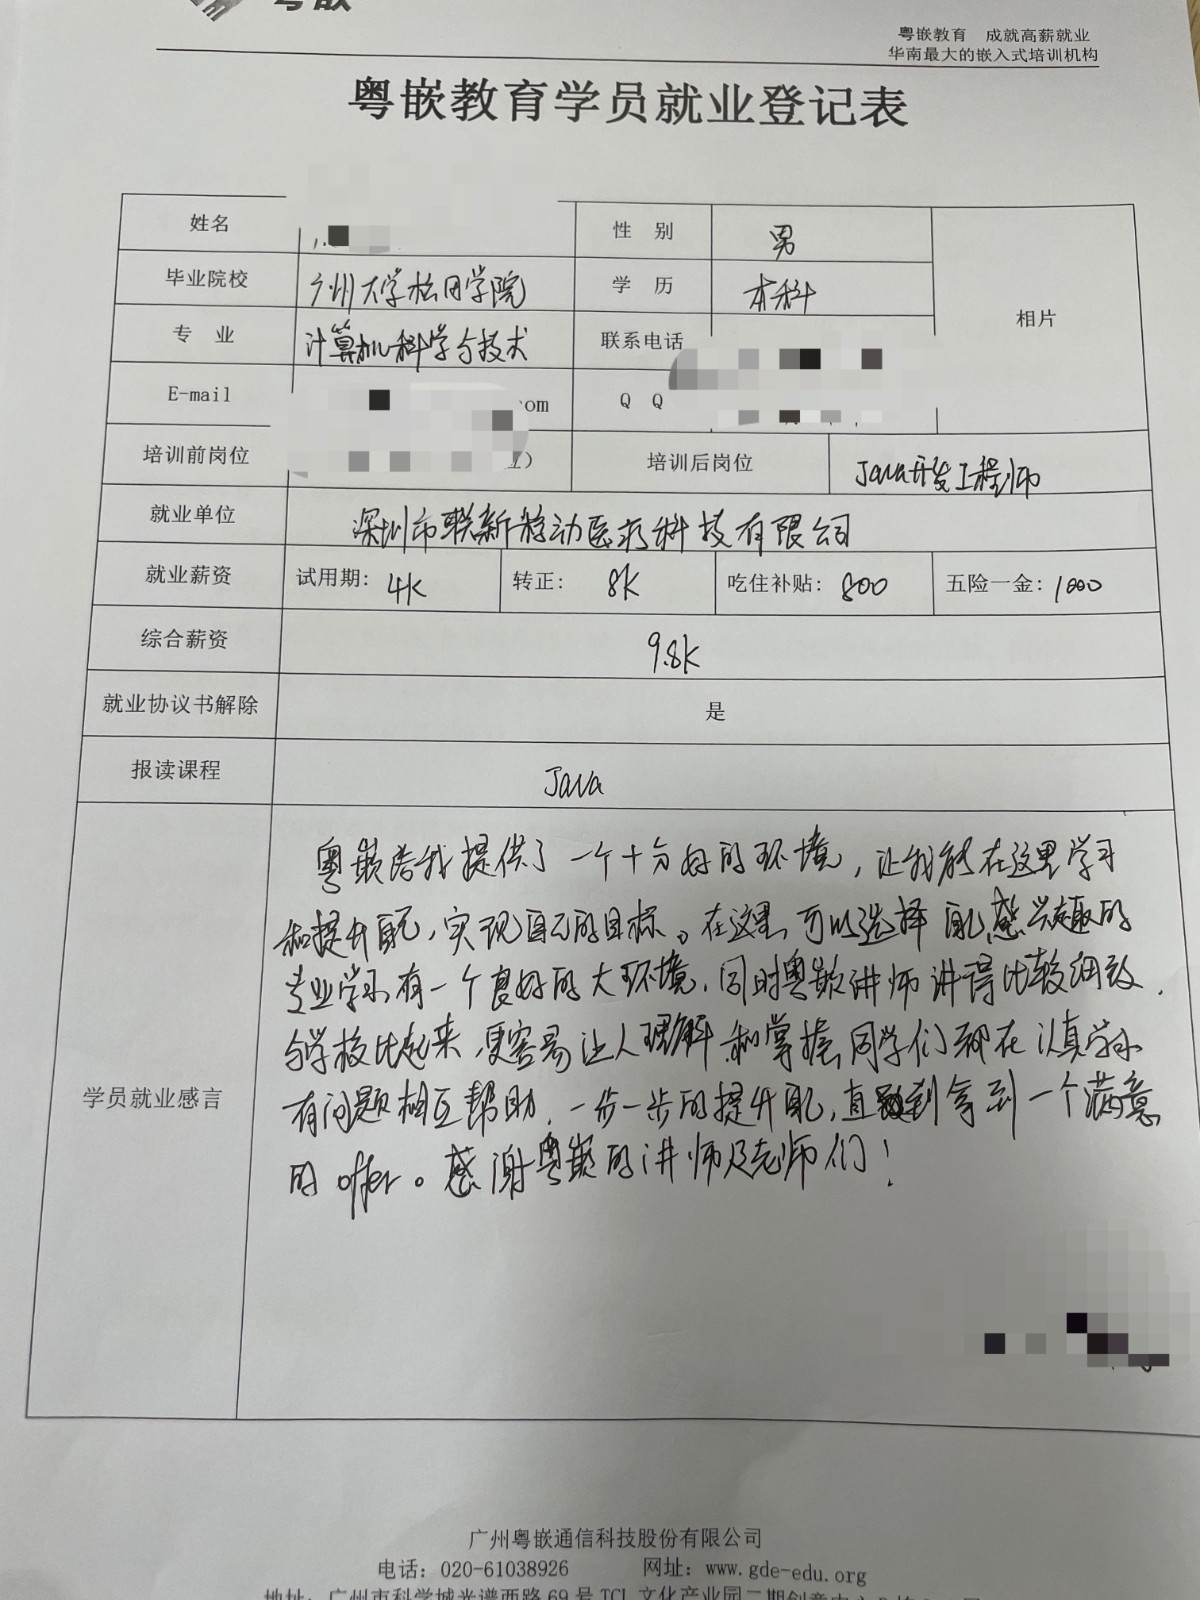 粤嵌
粤嵌教育 成就高薪就业
华南最大的嵌入式培训机构
粤嵌教育学员就业登记表
姓名 性 别 男
毕业院校 广州大学松田学院 学 历 本科 相片
专 业 计算机科学与技术 联系电话
E-mail com Q Q
培训前岗位 培训后岗位 Java开发工程师
就业单位 深圳市联新移动医疗科技有限公司
就业薪资 试用期: 4K 转正: 8K 吃住补贴: 800 五险一金: 1000
综合薪资 9.8K
就业协议书解除 是
报读课程 Java
粤嵌给我提供了一个十分好的环境，让我能在这里学习
和提升自己，实现自己的目标。在这里可以选择自己感兴趣的
专业学习有一个良好的大环境，同时粤嵌讲师讲得比较细致，
与学校比起来，更容易让人理解和掌握，同学们都在认真学习
学员就业感言
有问题相互帮助，一步一步的提升自己，直到拿到一个满意
的offer。感谢粤嵌的讲师及老师们！
广州粤嵌通信科技股份有限公司
电话: 020-61038926 网址: www.gde-edu.org
地址: 广州市科学城光谱西路69号TCL文化产业园二期创意中心